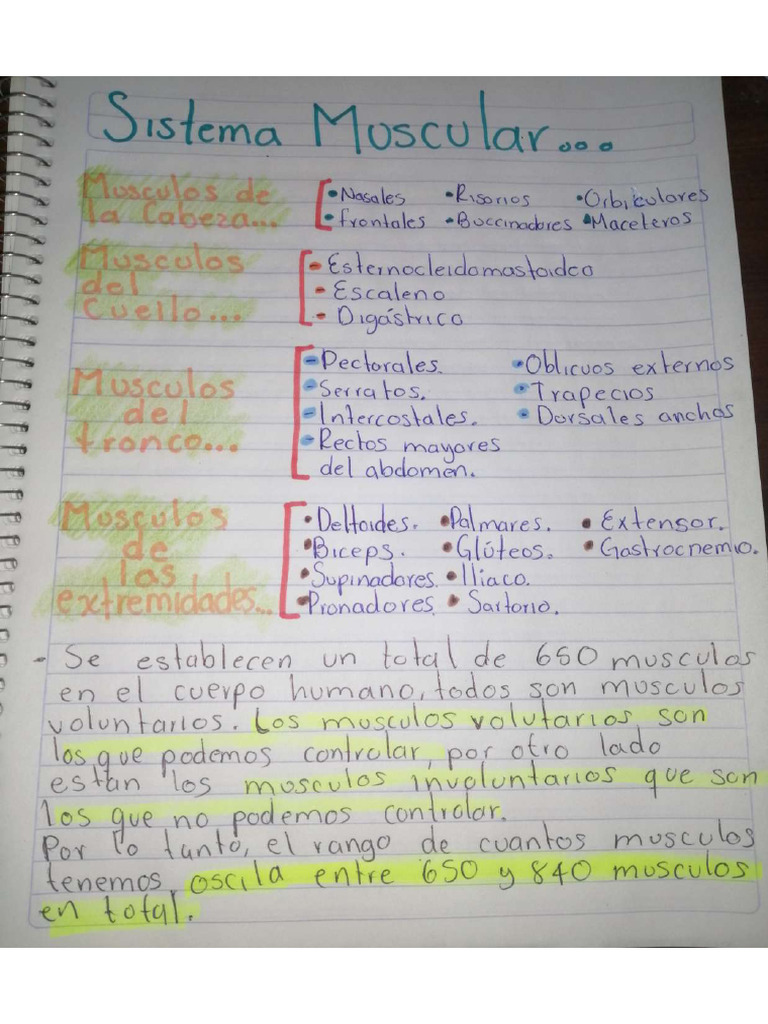 Sistema Muscular...
Musculos de
la Cabeza...
• Nasales • Risorios • Orbiculares
• frontales • Buccinadores • Maceteros
Musculos
del
Cuello...
- Esternocleidomastoideo
- Escaleno
- Digástrico
Musculos
del
tronco...
- Pectorales. • Oblicuos externos
- Serratos. • Trapecios
- Intercostales. • Dorsales anchos
- Rectos mayores
del abdomen.
Musculos
de
las
extremidades...
• Deltoides. • Palmares. • Extensor.
• Biceps. • Glúteos. • Gastrocnemio.
• Supinadores. • Iliaco.
• Pronadores • Sartorio.
- Se establecen un total de 650 musculos
en el cuerpo humano, todos son musculos
voluntarios. Los musculos volutarios son
los que podemos controlar, por otro lado
estan los musculos involuntarios que son
los que no podemos controlar.
Por lo tanto, el rango de cuantos musculos
tenemos, oscila entre 650 y 840 musculos
en total.